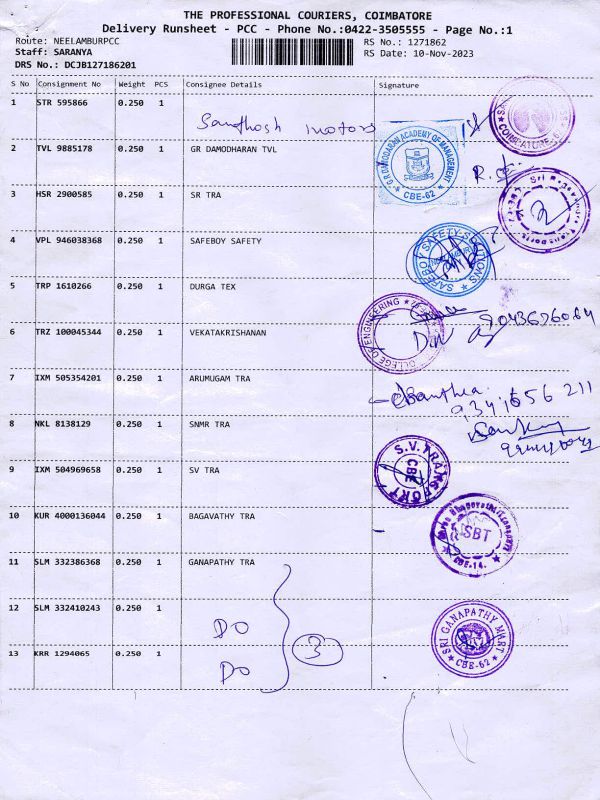 THE PROFESSIONAL COURIERS, COIMBATORE
Delivery Runsheet - PCC - Phone No.:0422-3505555 - Page No.:1
Route: NEELAMBURPCC RS No.: 1271862
Staff: SARANYA RS Date: 10-Nov-2023
DRS No.: DCJB127186201
S No Consignment No Weight PCS Consignee Details Signature
1 STR 595866 0.250 1 Santhosh motors
COIMBATORE-6
2 TVL 9885178 0.250 1 GR DAMODHARAN TVL
G.R DAMODARAN ACADEMY OF MANAGEMENT CBE-62
3 HSR 2900585 0.250 1 SR TRA
4 VPL 946038368 0.250 1 SAFEBOY SAFETY
SAFEBOY SAFETY SOLUTIONS
5 TRP 1610266 0.250 1 DURGA TEX
6 TRZ 100045344 0.250 1 VEKATAKRISHANAN
COLLEGE OF ENGINEERING
7 IXM 505354201 0.250 1 ARUMUGAM TRA
8 NKL 8138129 0.250 1 SNMR TRA
9 IXM 504969658 0.250 1 SV TRA
S.V. TRANSPORT CBE
10 KUR 4000136044 0.250 1 BAGAVATHY TRA
SBT CBE-14.
11 SLM 332386368 0.250 1 GANAPATHY TRA
12 SLM 332410243 0.250 1 DO
SRI GANAPATHY MART CBE-62
3
13 KRR 1294065 0.250 1 DO